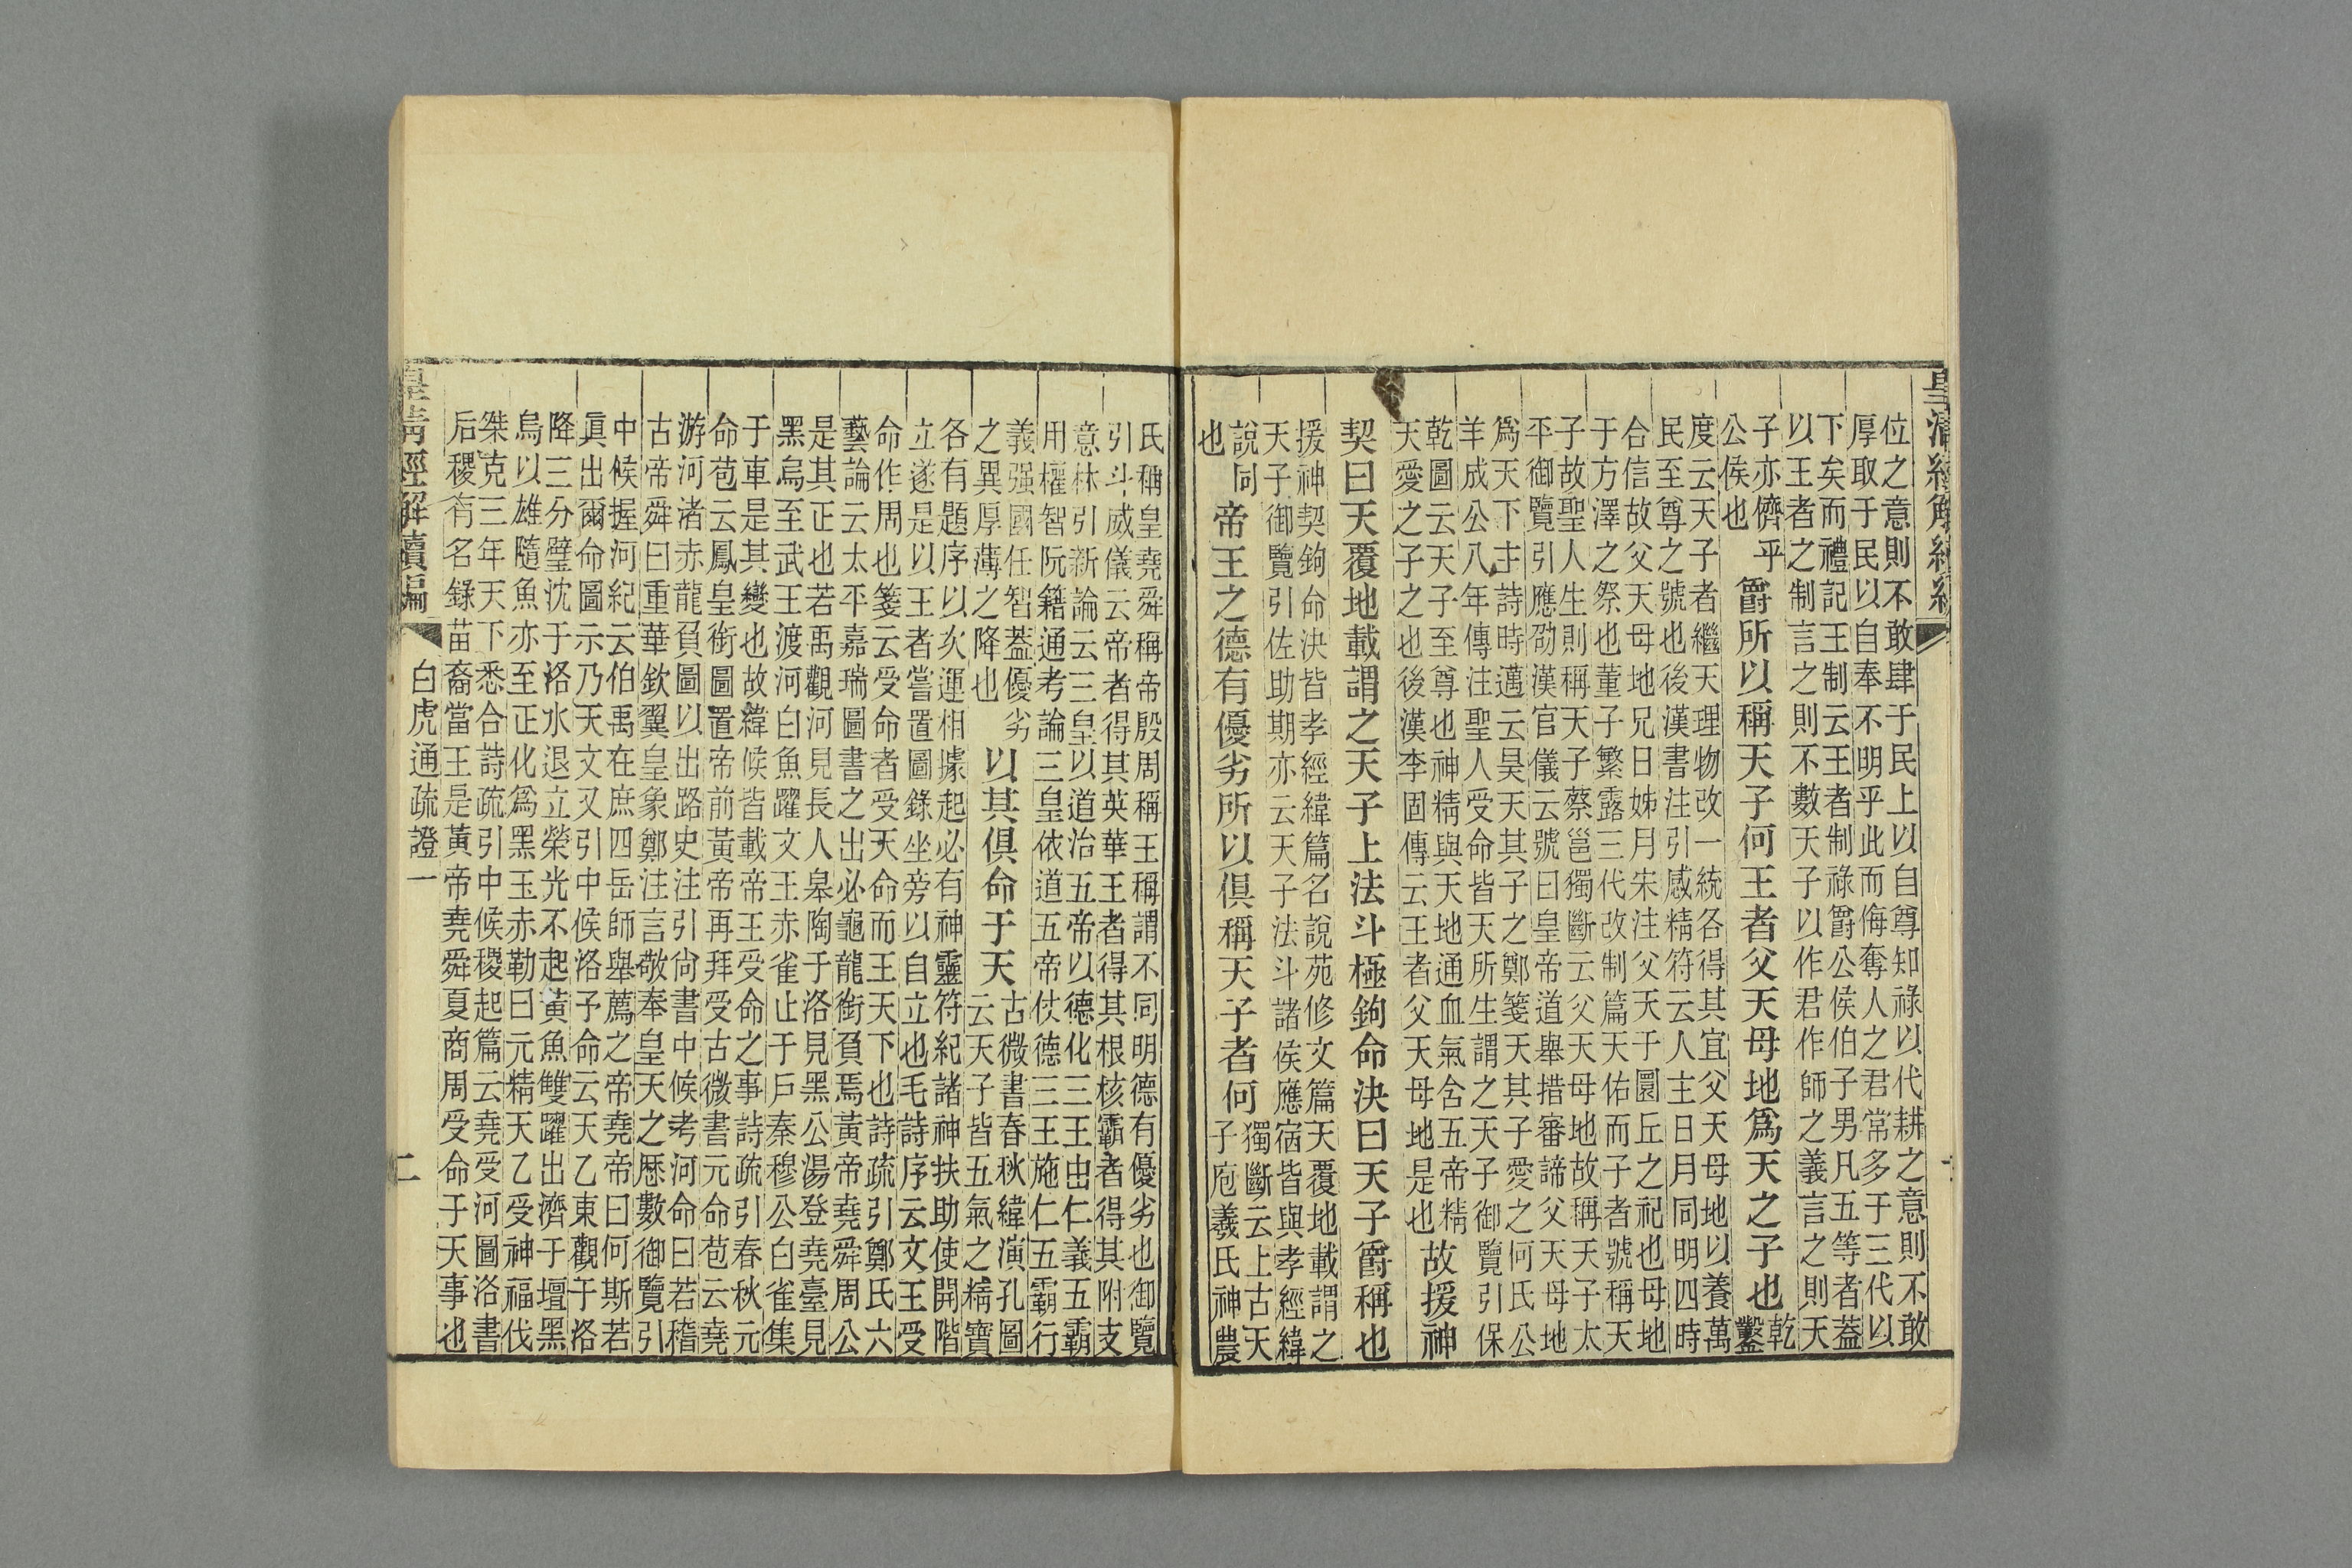 皇清經解續編
位之意則不敢肆于民上以自尊知祿以代耕之意則不敢
厚取于民以自奉不明乎此而侮奪人之君常多于三代以
下矣而禮記王制云王者制祿爵公侯伯子男凡五等者蓋
以王者之制言之則不數天子以作君作師之義言之則天
子亦儕乎
公侯也
爵所以稱天子何王者父天母地爲天之子也
乾
鑿
度云天子者繼天理物改一統各得其宜父天母地以養萬
民至尊之號也後漢書注引感精符云人主日月同明四時
合信故父天母地兄日姊月朱注父天于圜丘之祀也母地
于方澤之祭也董子繁露三代改制篇天佑而子者號稱天
子故聖人生則稱天子蔡邕獨斷云父天母地故稱天子太
平御覽引應劭漢官儀云號曰皇帝道舉措審諦父天母地
爲天下主詩時邁云昊天其子之鄭箋天其子愛之何氏公
羊成公八年傳注聖人受命皆天所生謂之天子御覽引保
乾圖云天子至尊也神精與天地通血氣含五帝精
天愛之子之也後漢李固傳云王者父天母地是也
故援神
契曰天覆地載謂之天子上法斗極鉤命決曰天子爵稱也
援神契鉤命決皆孝經緯篇名說苑修文篇天覆地載謂之
天子御覽引佐助期亦云天子法斗諸侯應宿皆與孝經緯
說同
也
帝王之德有優劣所以俱稱天子者何
獨斷云上古天
子庖羲氏神農
氏稱皇堯舜稱帝殷周稱王稱謂不同明德有優劣也御覽
引斗威儀云帝者得其英華王者得其根核霸者得其附支
意林引新論云三皇以道治五帝以德化三王由仁義五霸
用權智阮籍通考論三皇依道五帝仗德三王施仁五霸行
義强國任智蓋優劣
之異厚薄之降也
以其俱命于天
古微書春秋緯演孔圖
云天子皆五氣之精寶
各有題序以次運相據起必有神靈符紀諸神扶助使開階
立遂是以王者嘗置圖錄坐旁以自立也毛詩序云文王受
命作周也箋云受命者受天命而王天下也詩疏引鄭氏六
藝論云太平嘉瑞圖書之出必龜龍銜負焉黃帝堯舜周公
是其正也若禹觀河見長人皋陶于洛見黑公湯登堯臺見
黑烏至武王渡河白魚躍文王赤雀止于戶秦穆公白雀集
于車是其變也故緯候皆載帝王受命之事詩疏引春秋元
命苞云鳳皇銜圖置帝前黃帝再拜受古微書元命苞云堯
游河渚赤龍負圖以出路史注引尚書中候考河命曰若稽
古帝舜曰重華欽翼皇象鄭注言敬奉皇天之厯數御覽引
中候握河紀云伯禹在庶四岳師舉薦之帝堯帝曰何斯若
眞出爾命圖示乃天文又引中候洛予命云天乙東觀于洛
降三分璧沈于洛水退立榮光不起黃魚雙躍出濟于壇黑
烏以雄隨魚亦至正化爲黑玉赤勒曰元精天乙受神福伐
桀克三年天下悉合詩疏引中候稷起篇云堯受河圖洛書
后稷有名錄苗裔當王是黃帝堯舜夏商周受命于天事也
皇清經解續編
白虎通疏證一
二